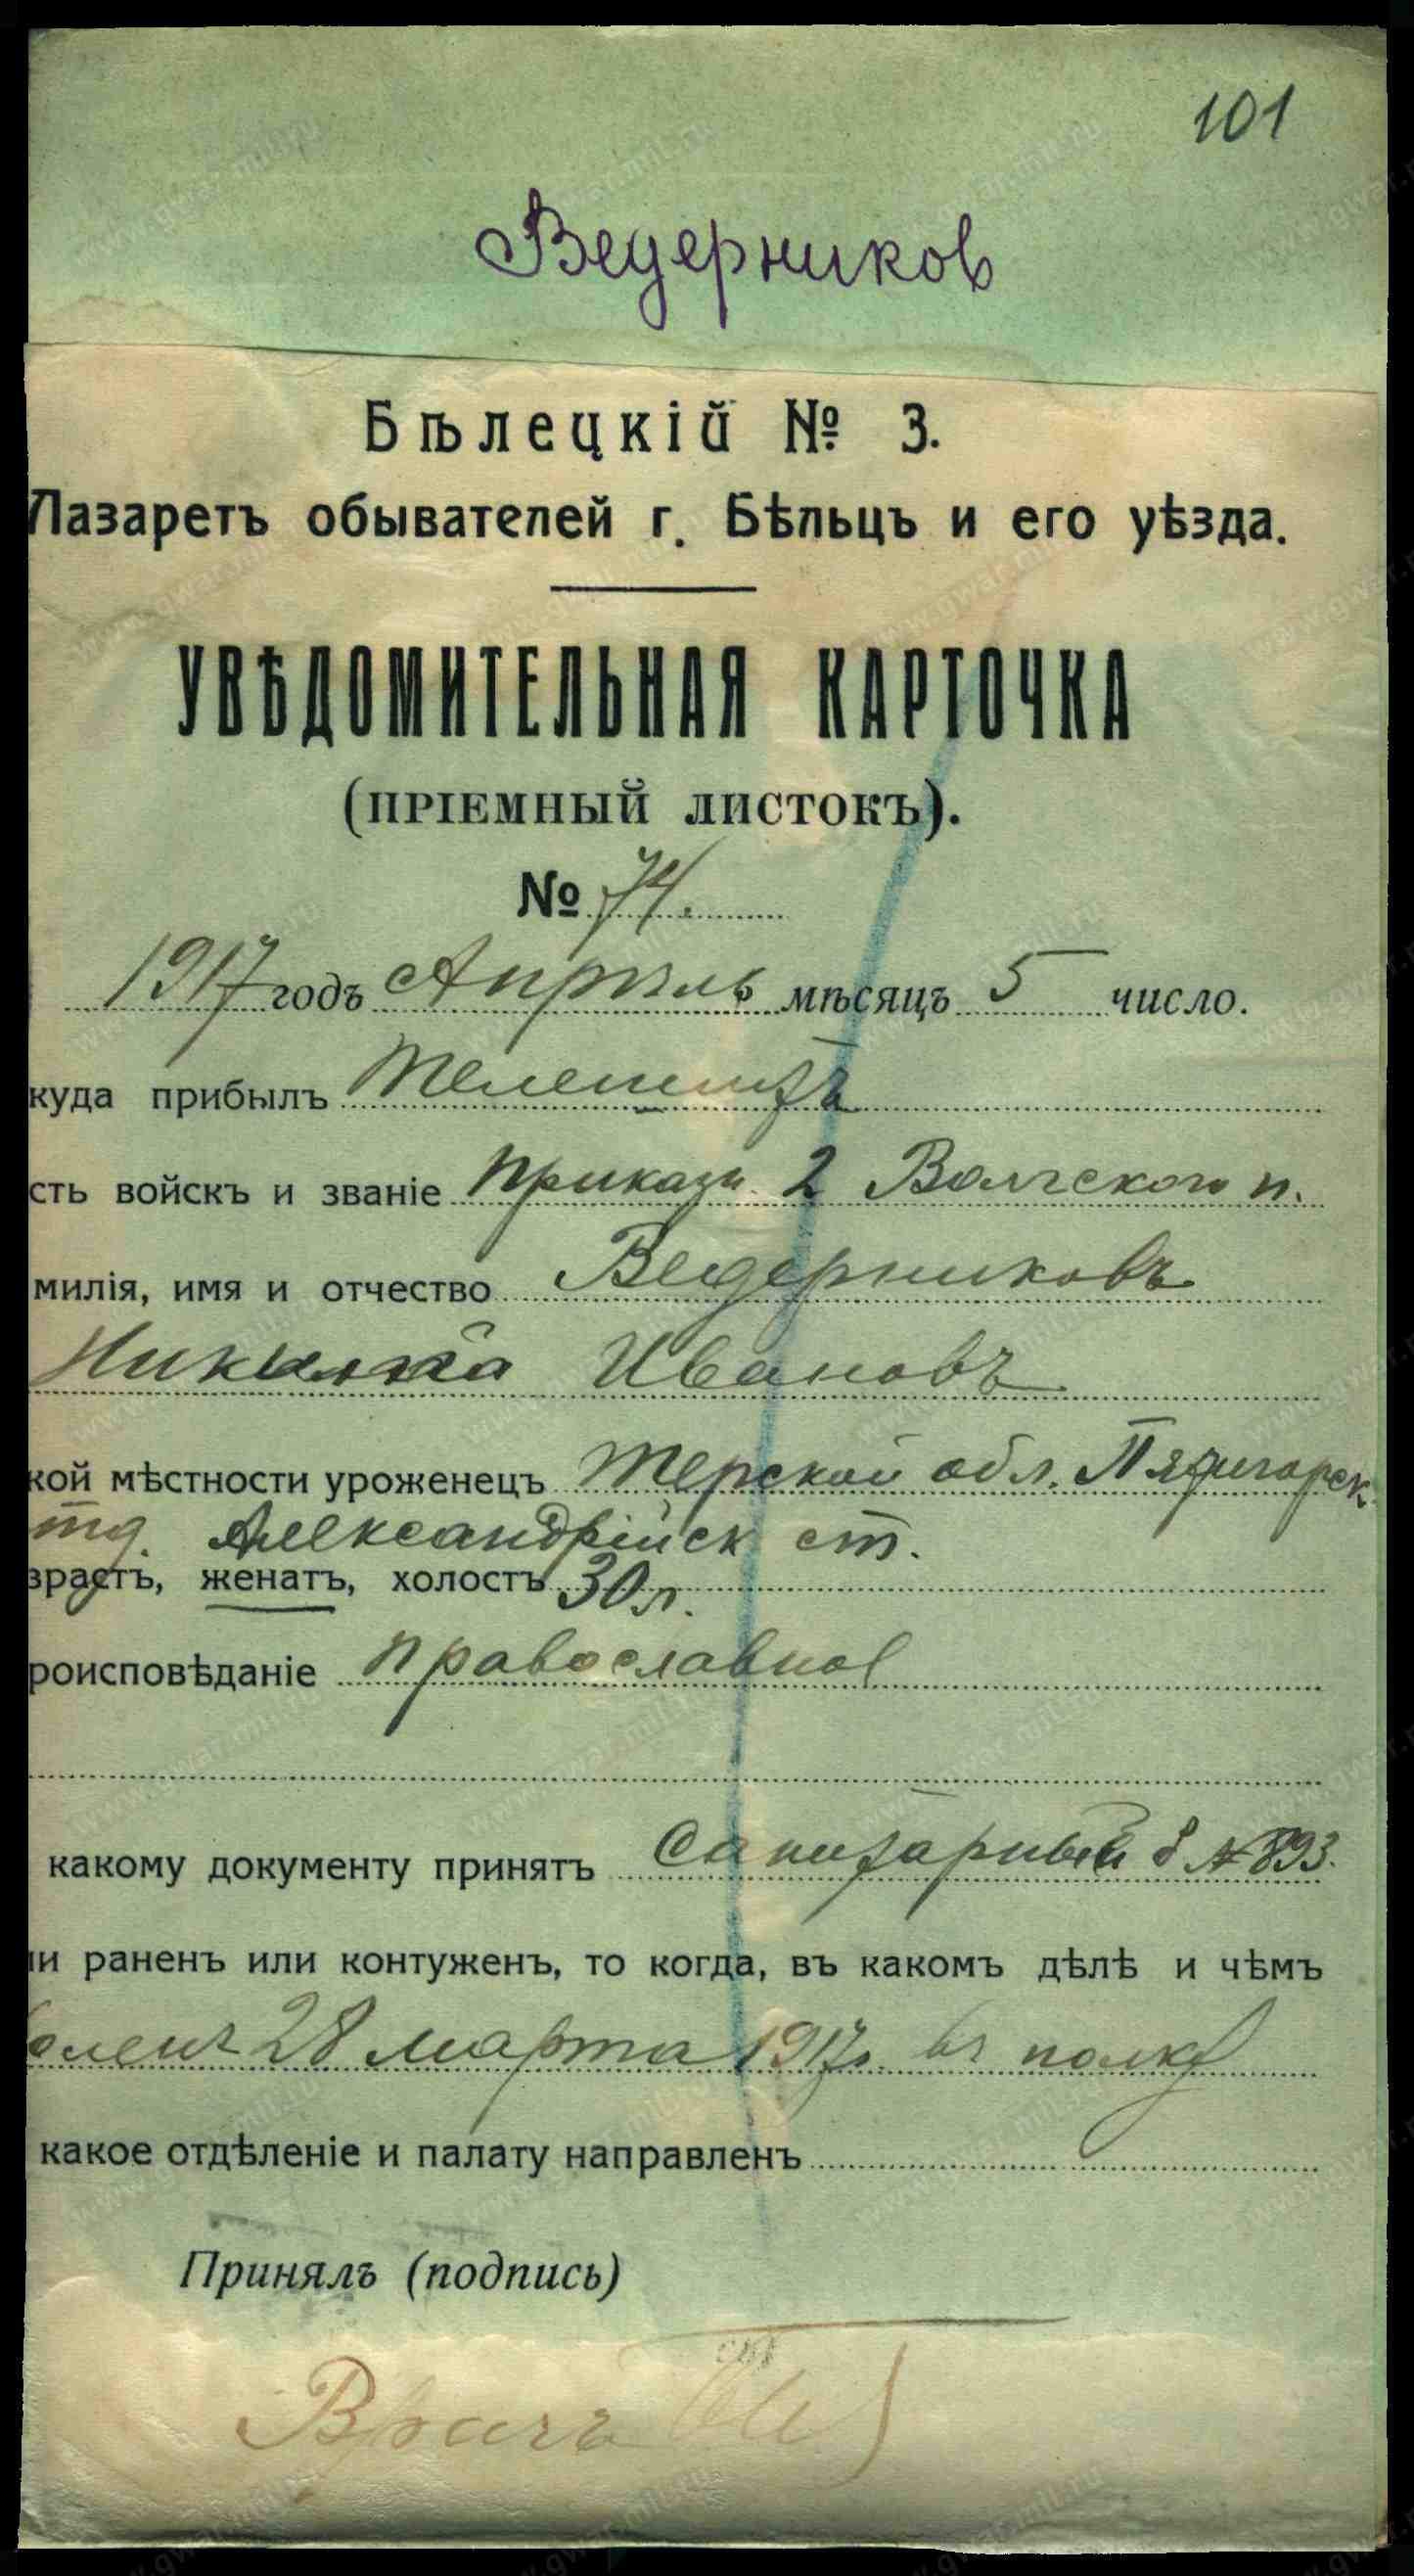 101
Ведерников
Бѣлецкій № 3.
Лазаретъ обывателей г. Бѣльцъ и его уѣзда.
УВѢДОМИТЕЛЬНАЯ КАРТОЧКА
(ПРІЕМНЫЙ ЛИСТОКЪ).
№ 74.
1917 годъ Апрѣль мѣсяцъ 5 число.
куда прибылъ
сть войскъ и званіе Приказн. 2 Волгского п.
милія, имя и отчество Ведерниковъ
Николай Ивановъ
кой мѣстности уроженецъ Терской обл. Пятигорск.
отд. Александрійск ст.
зрастъ, женатъ, холостъ 30 л.
роисповѣданіе православное
какому документу принятъ Санитарный № 893.
ли раненъ или контуженъ, то когда, въ какомъ дѣлѣ и чѣмъ
боленъ 28 марта 1917 г. въ полку
какое отдѣленіе и палату направленъ
Принялъ (подпись)
Врачъ
www.gwar.mil.ru